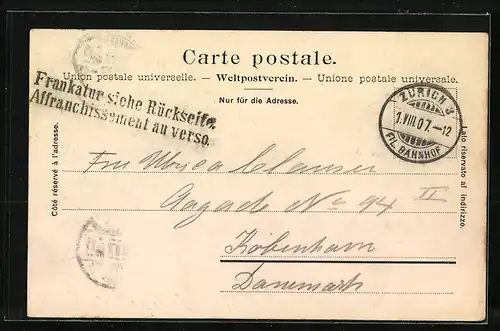 Carte postale.
Union postale universelle. – Weltpostverein. – Unione postale universale.
Nur für die Adresse.
Frankatur siehe Rückseite.
Affranchissement au verso.
ZÜRICH 3
1.VIII.07.-12
FIL. BAHNHOF
Côté réservé à l'adresse.
Lato riservato al indirizzo.
Fru
Aagade No 94 II
København
Danemark